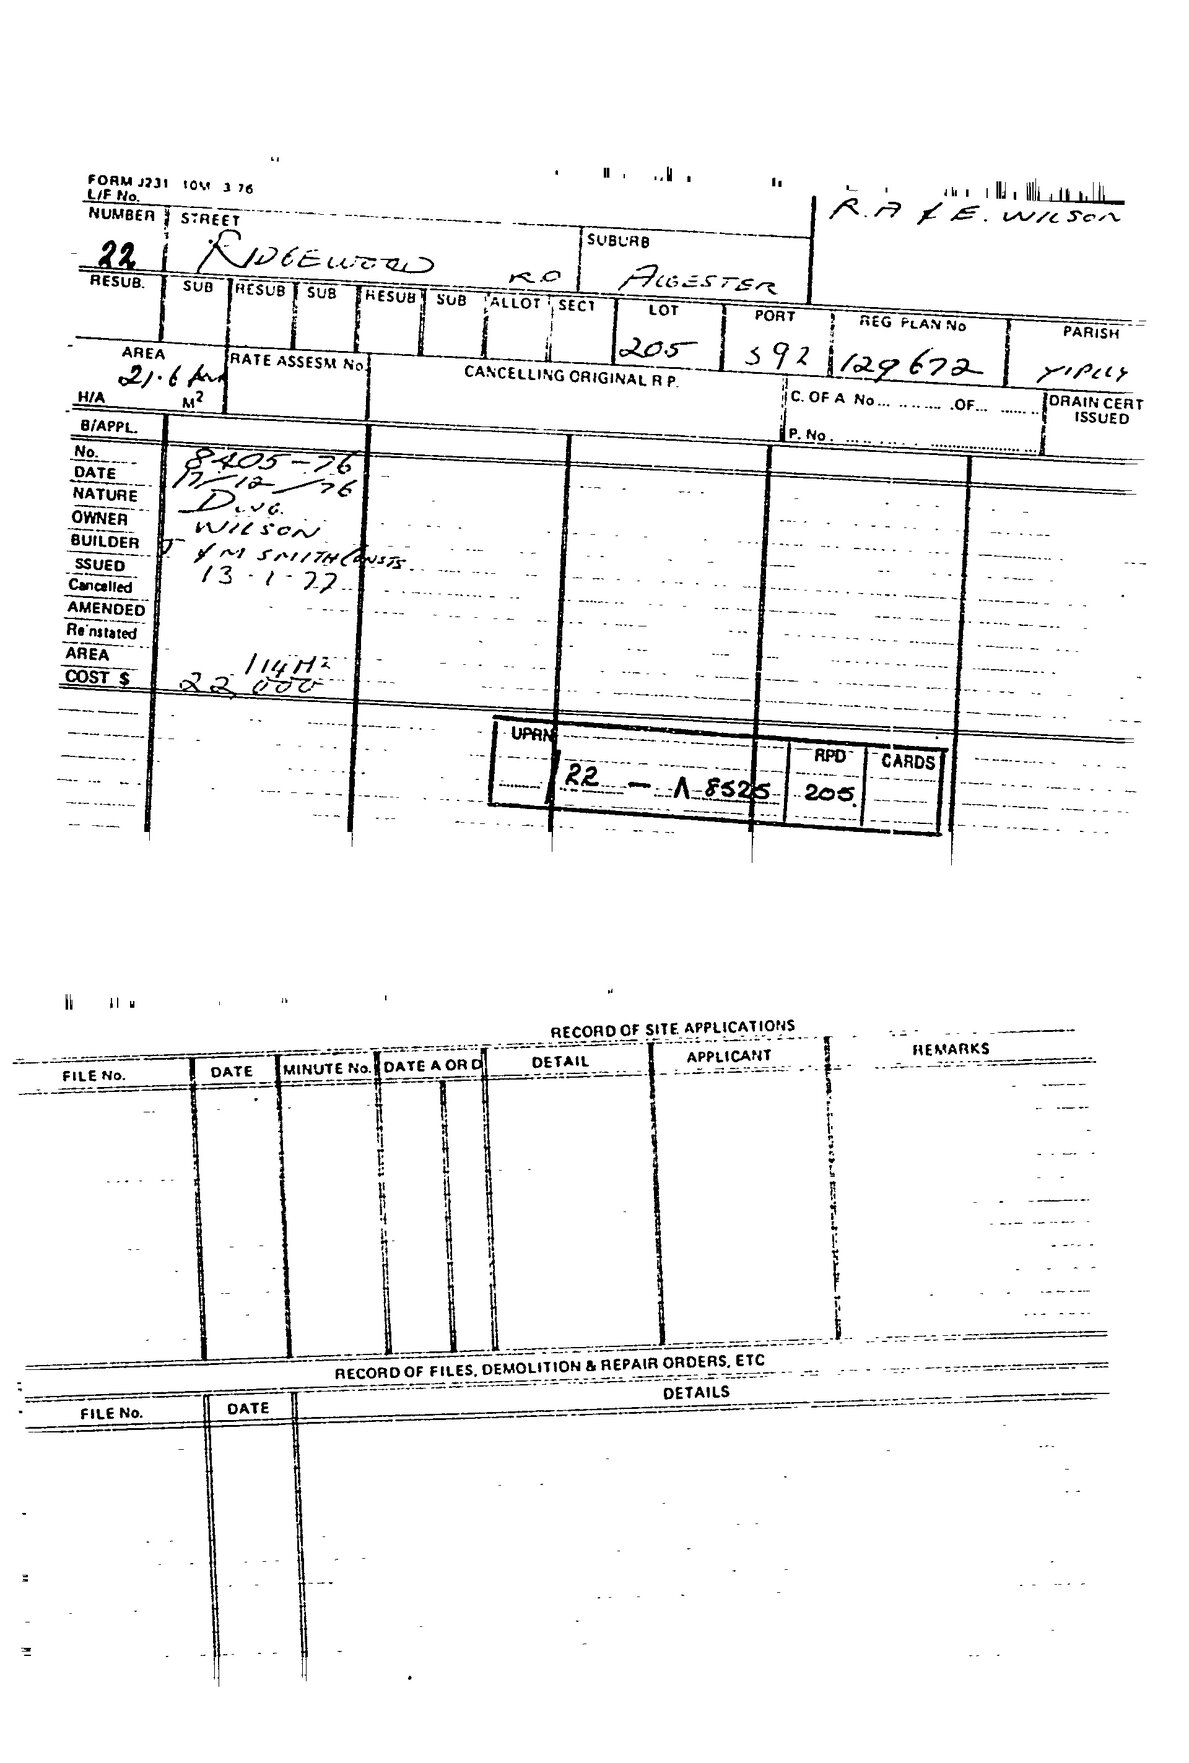 FORM J231 10M 3 76
L/F No.
R. A & E. WILSON
NUMBER STREET SUBURB
22 RIDGEWOOD RD ALGESTER
RESUB. SUB RESUB SUB RESUB SUB ALLOT SECT LOT PORT REG PLAN No PARISH
205 392 129672
AREA RATE ASSESM No. CANCELLING ORIGINAL R P.
21.6
H/A M2
C. OF A No ... OF ... DRAIN CERT ISSUED
P. No.
B/APPL.
No. 8405-76
DATE 17/12/76
NATURE Dwg.
OWNER WILSON
BUILDER J & M SMITH CONSTS.
ISSUED 13-1-77
Cancelled
AMENDED
Reinstated
AREA 114M2
COST $ 22,000
UPRN RPD CARDS
22 - A 8525 205
RECORD OF SITE APPLICATIONS
FILE No. DATE MINUTE No. DATE A OR D DETAIL APPLICANT REMARKS
RECORD OF FILES, DEMOLITION & REPAIR ORDERS, ETC
FILE No. DATE DETAILS